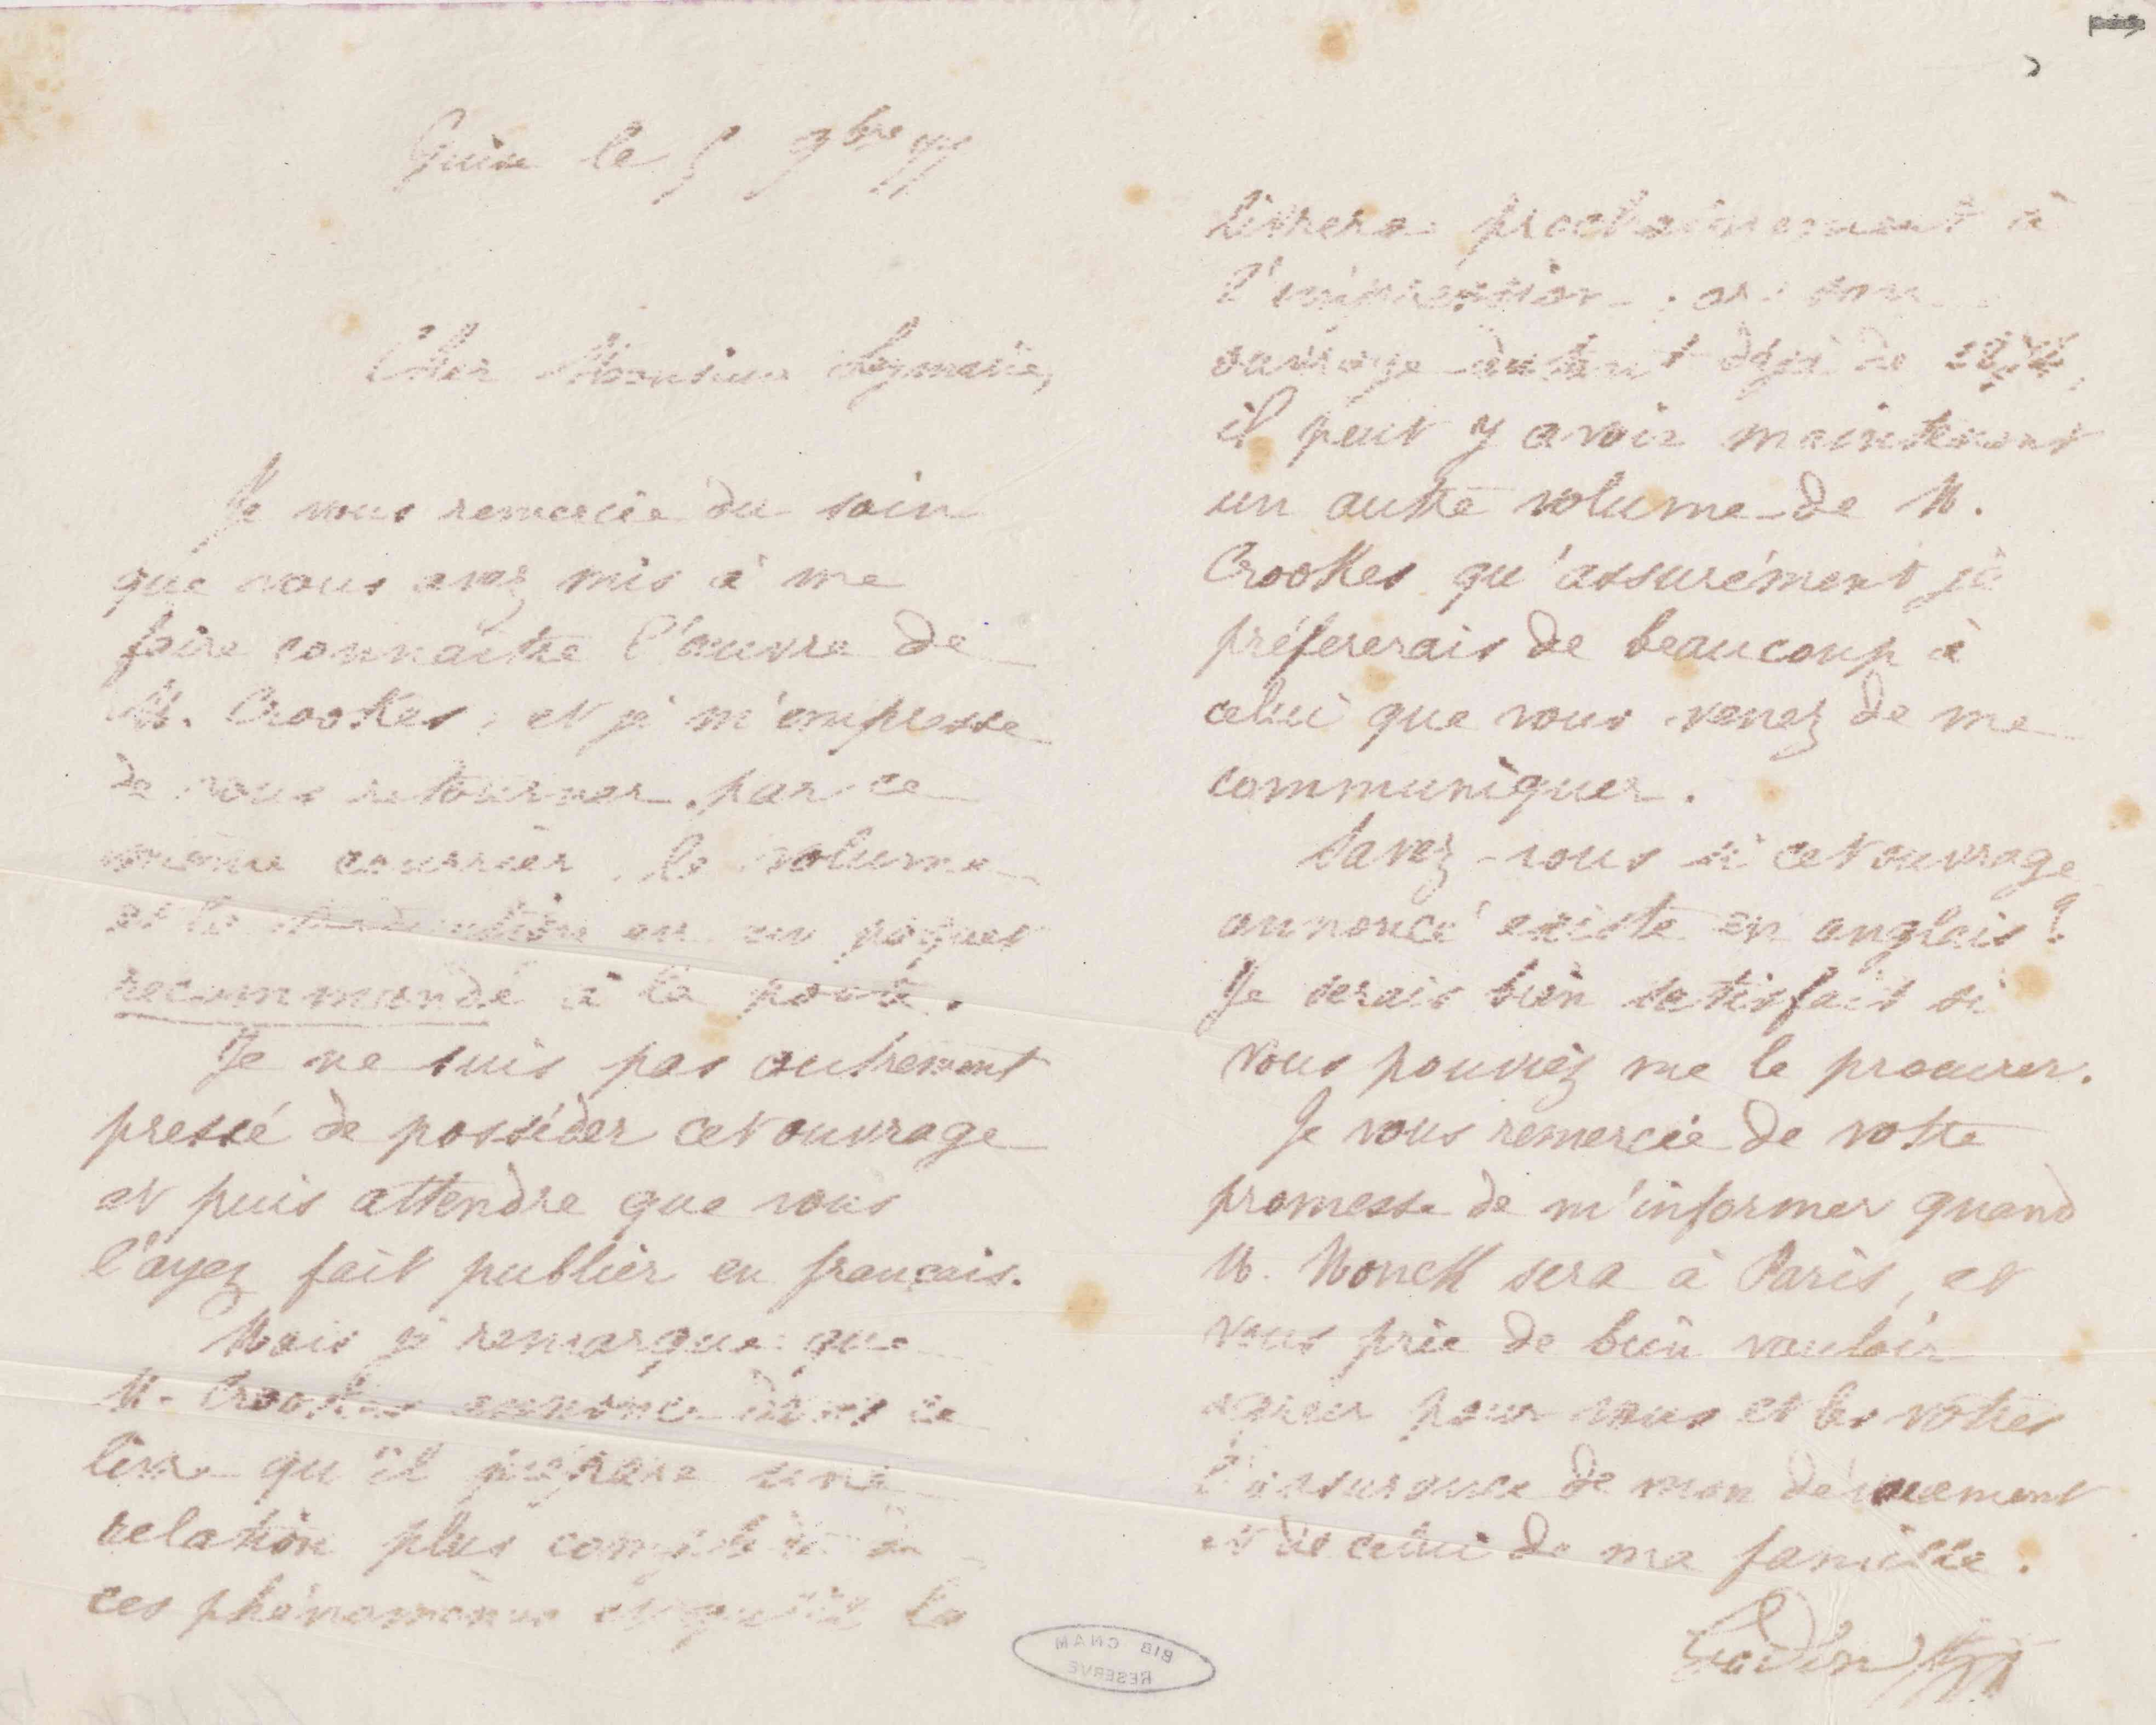 Guise le 5 9bre 77
Cher Monsieur Leymarie,
Je vous remercie du soin
que vous avez mis à me
faire connaitre l'œuvre de
M. Crookes, et je m'empresse
de vous retourner par ce
même courrier le volume
et la traduction en un paquet
recommandé à la poste.
Je ne suis pas autrement
pressé de posséder cet ouvrage
et puis attendre que vous
l'ayez fait publier en français.
Mais je remarque que
M. Crookes annonce dans ce
livre qu'il prépare une
relation plus complète de
ces phénomènes et qu'il la
livrera prochainement à
l'impression, or son
ouvrage datant déjà de 1874,
il peut y avoir maintenant
un autre volume de M.
Crookes qu'assurément je
préfererais de beaucoup à
celui que vous venez de me
communiquer.
Savez-vous si cet ouvrage
annoncé existe en anglais?
Je serais bien satisfait si
vous pouviez me le procurer.
Je vous remercie de votre
promesse de m'informer quand
M. Monck sera à Paris, et
vous prie de bien vouloir
agréer pour vous et les vôtres
l'assurance de mon dévouement
et de celui de ma famille.
Godin
BIB CNAM
RESERVE